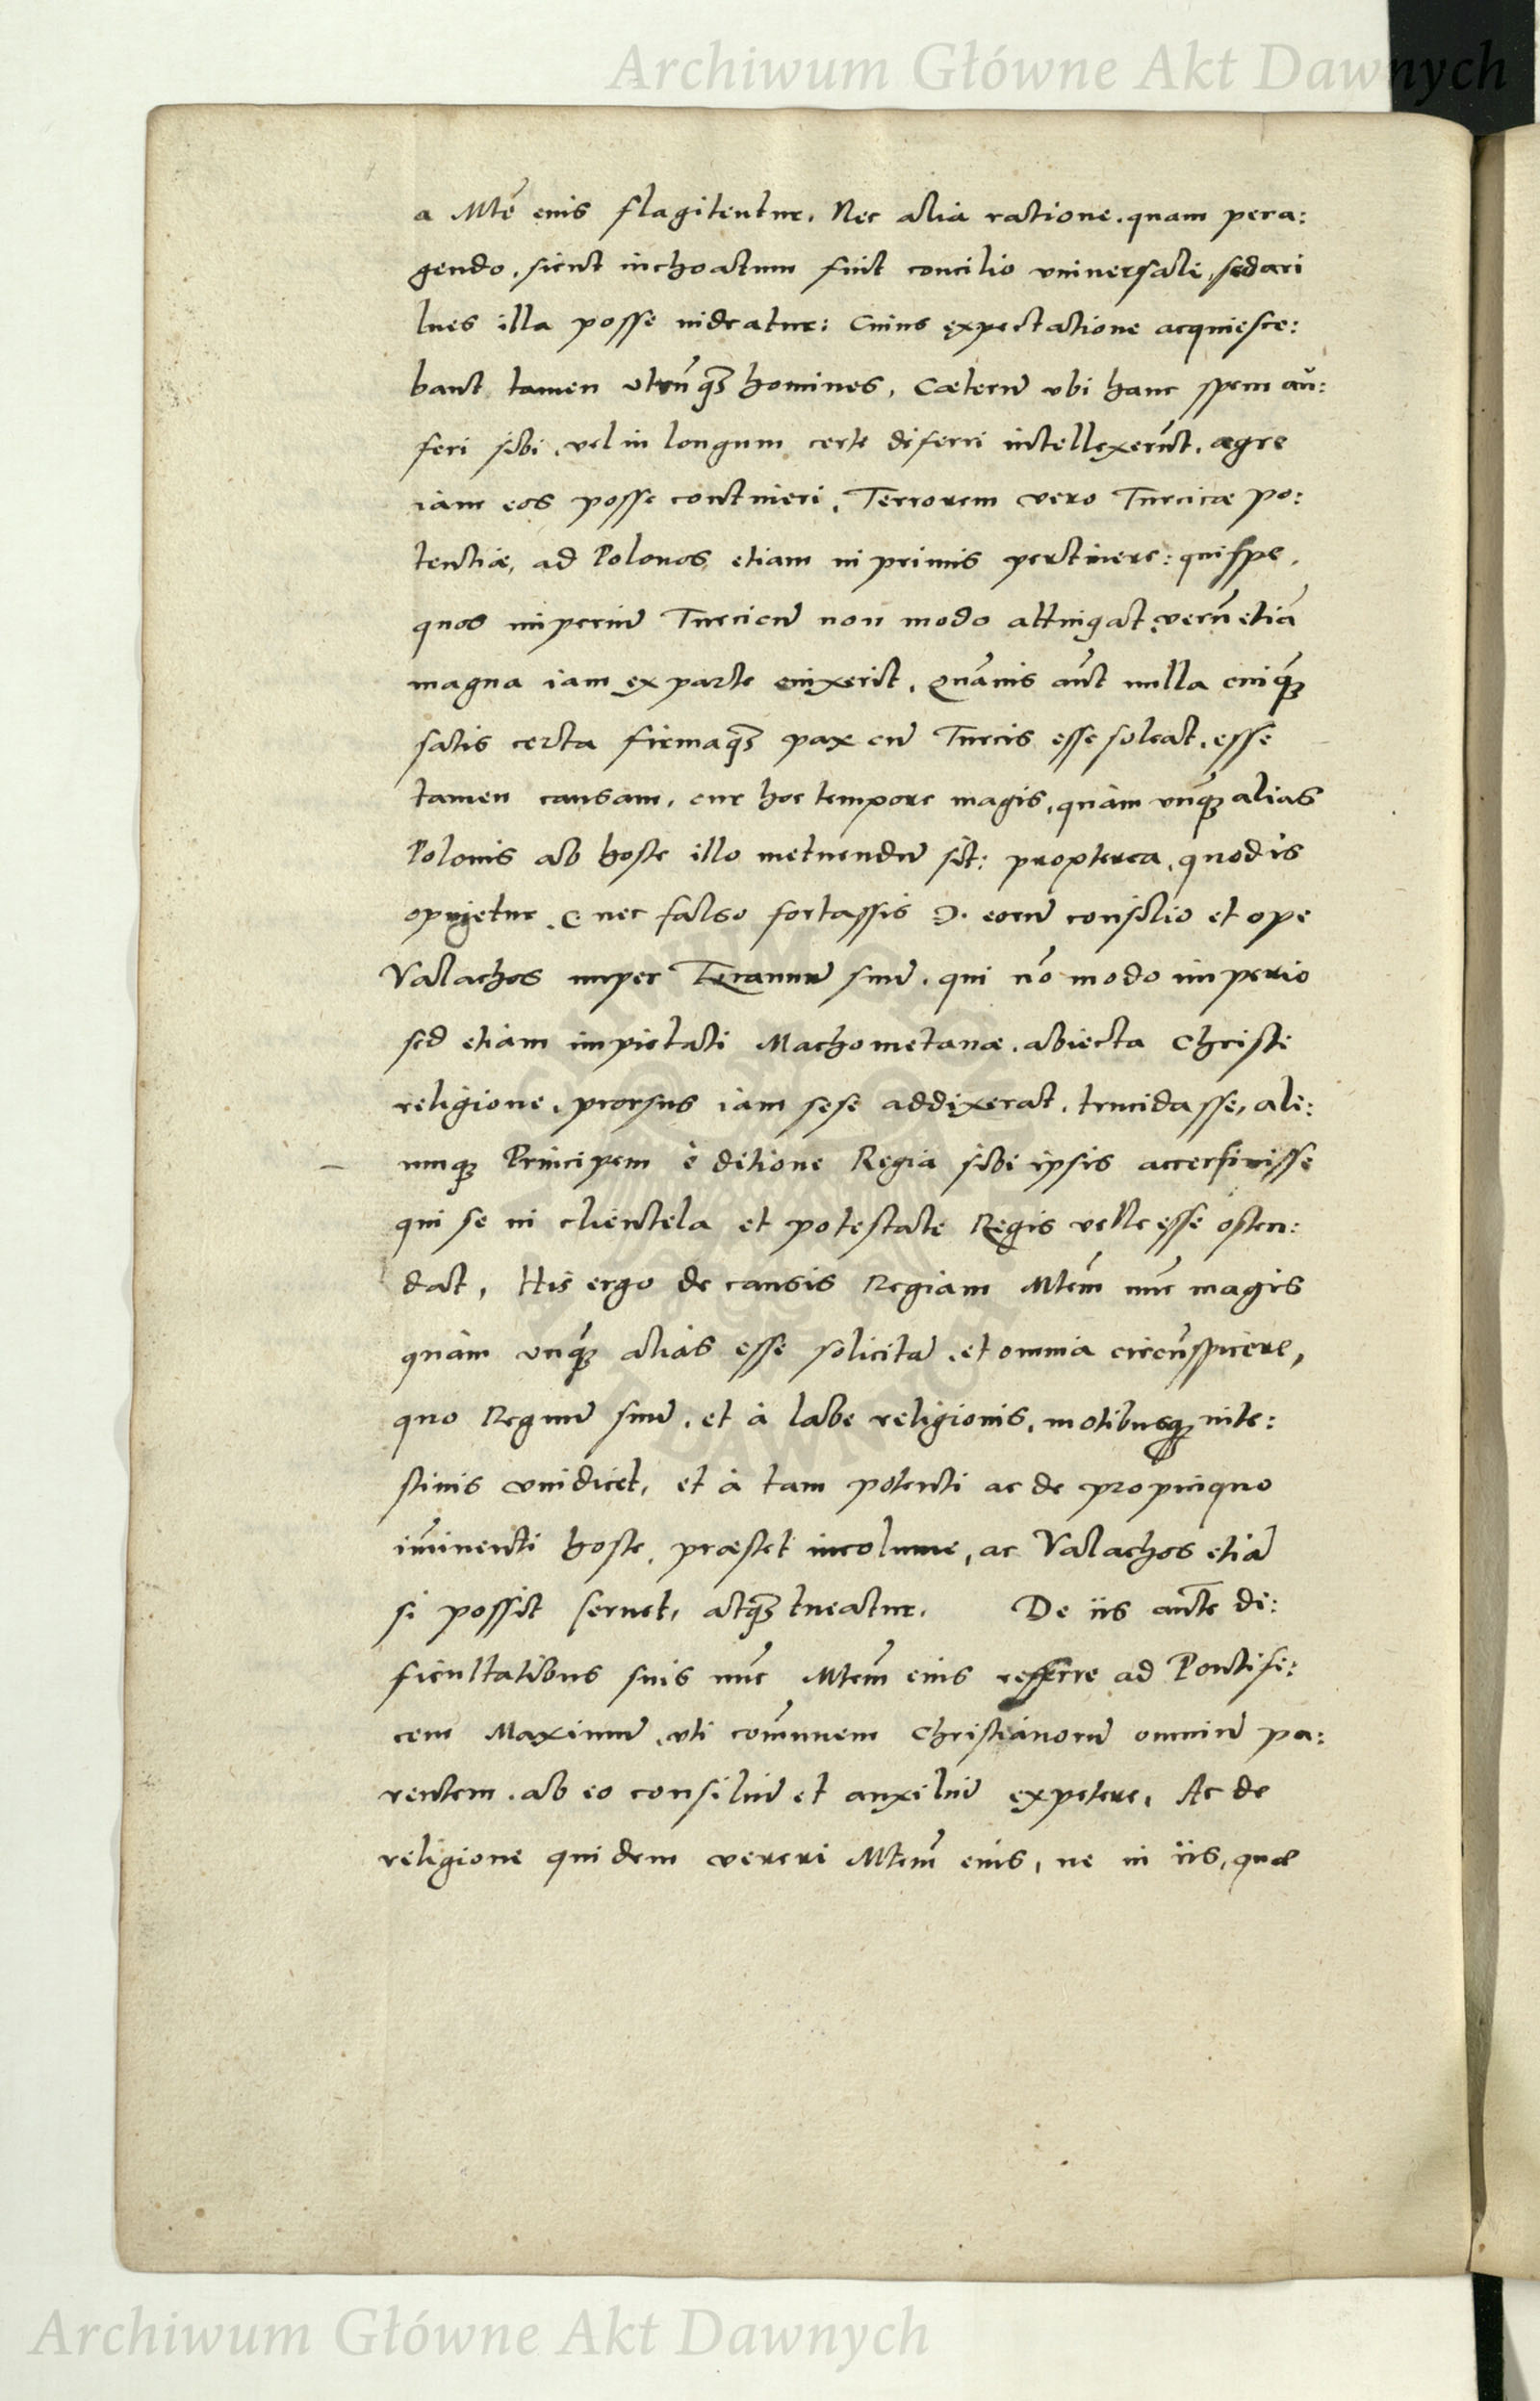 Archiwum Główne Akt Dawnych
a Mte eius flagitentur. Nec alia ratione, quam pera:
gendo, sicut inchoatum fuit concilio vniuersali, sedari
lues illa posse uideatur: Cuius expectatione acquiesce:
bant tamen vtcūq homines, Cæterū vbi hanc spem au:
feri sibi, vel in longum certe diferri intellexerūt, ægre
iam eos posse contineri, Terrorem vero Turcicæ po:
tentiæ, ad Polonos etiam in primis pertinere: quippe,
quos imperiū Turcicū non modo attingat, verū etiā
magna iam ex parte cinxerit, Quāuis aūt nulla cuiq
satis certa firmaq pax cū Turcis esse soleat, esse
tamen causam, cur hoc tempore magis, quàm vnq alias
Polonis ab hoste illo metuendū sit: propterea, quod is
opinetur (nec falso fortassis) eorū consilio et ope
Valachos nuper Tyrannū suū, qui nō modo imperio
sed etiam impietati Machometanæ, abiecta Christi
religione, prorsus iam sese addixerat, trucidasse, ali:
umq Principem è ditione Regia sibi ipsis accersiuisse
qui se in clientela et potestate Regis velle esse osten:
dat, His ergo de causis Regiam Mtem nūc magis
quàm vnq alias esse solicitā, et omnia circūspicere,
quo Regnū suū, et à labe religionis, motibusq inte:
stinis vindicet, et à tam potenti ac de propinquo
iminenti hoste, præstet incolume, ac Valachos etiā
si possit seruet, atq tueatur. De iis autē di:
ficultatibus suis nūc Mtem eius referre ad Pontifi:
cem Maximū, vti comunem Christianorū omniū pa:
rentem, ab eo consiliū et auxiliū expetere, Ac de
religione quidem vereri Mtem eius, ne in iis, quæ
Archiwum Główne Akt Dawnych